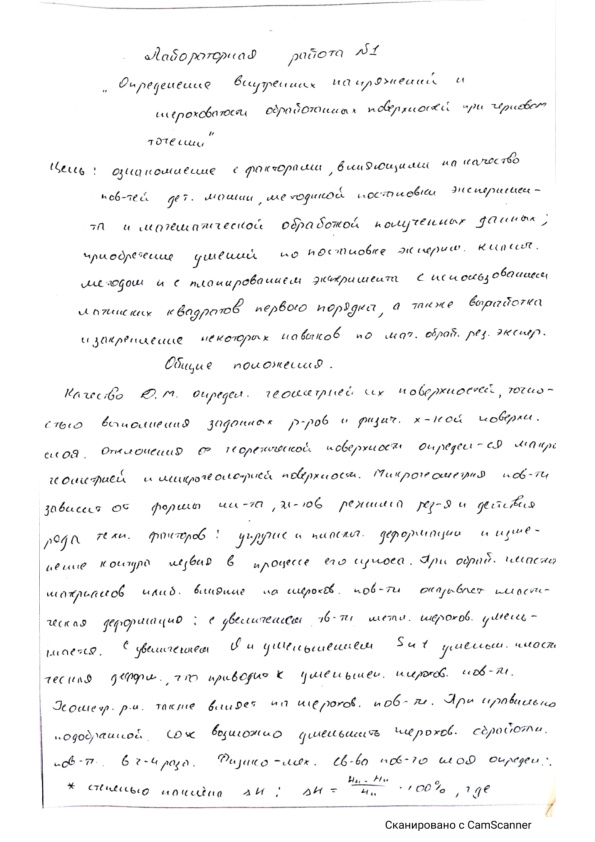 Лабораторная работа №1
„Определение внутренних напряжений и
шероховатости обработанных поверхностей при черновом
точении"
Цель: ознакомление с факторами, влияющими на качество
пов-тей дет. машин, методикой постановки эксперимен-
та и математической обработкой полученных данных;
приобретение умений по постановке эксперим. классич.
методом и с планированием эксперимента с использованием
латинских квадратов первого порядка, а также выработка
и закрепление некоторых навыков по мат. обраб. рез. экспер.
Общие положения.
Качество Д.М. определ. геометрией их поверхностей, точно-
стью выполнения заданных р-ров и физич. х-кой поверхн.
слоя. Отклонения от теоретической поверхности определ-ся макро
геометрией и микрогеометрией поверхности. Микрогеометрия пов-ти
зависит от формы ин-та, эл-тов режима рез-я и действия
ряда техн. факторов: упругие и пластич. деформации и изме-
нение контура лезвия в процессе его износа. При обраб. пластич
материалов наиб. влияние на шерохов. пов-ти оказывает пласти-
ческая деформация: с увеличением тв-ти метал. шерохов. умень-
шается. С увеличением и уменьшением S и t уменьш. пласти
ческая деформ., что приводит к уменьшен. шерохов. пов-ти.
Геометр. р.и. также влияет на шерохов. пов-ти. При правильно
подобранной СОЖ возможно уменьшить шерохов. обработан.
пов-ти в 2-4 раза. Физико-мех. св-ва пов-го слоя определ.:
* степенью наклёпа ΔH: ΔH = · 100%, где
Сканировано с CamScanner